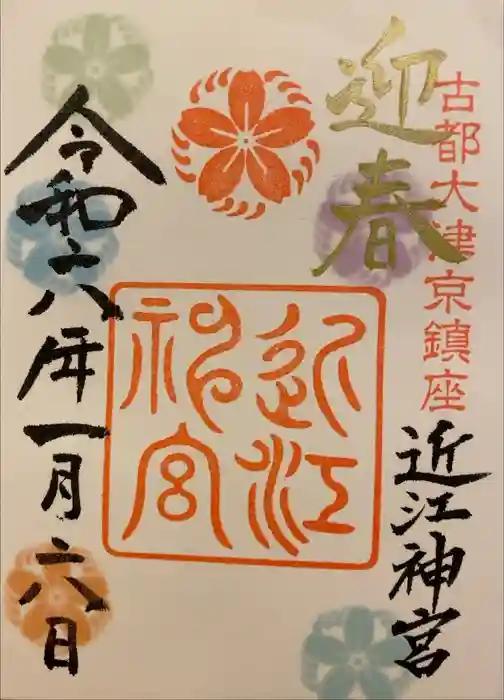 古都大津京鎮座
迎春
近江神宮
近江神宮
令和六年一月六日